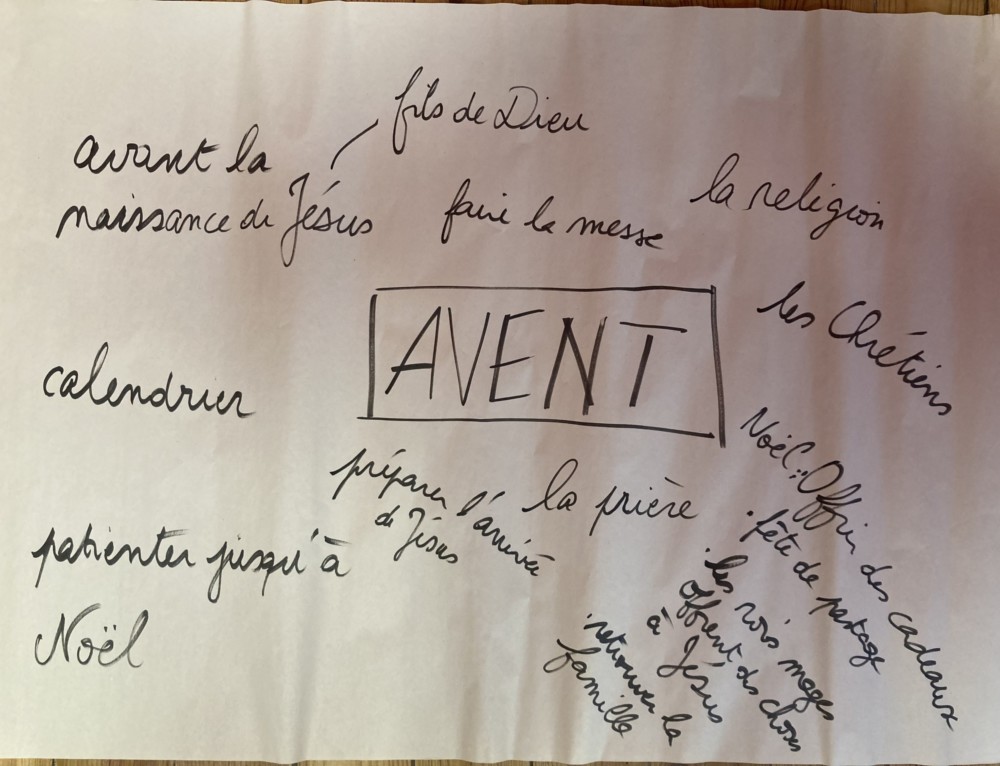 fils de Dieu
avant la
naissance de Jésus
faire la messe
la religion
les Chrétiens
AVENT
calendrier
préparer l'arrivée
de Jésus
la prière
patienter jusqu'à
Noël
Noël : Offrir des cadeaux
. fête de partage
. les rois mages
offrent des choses
à Jésus
. retrouver la
famille